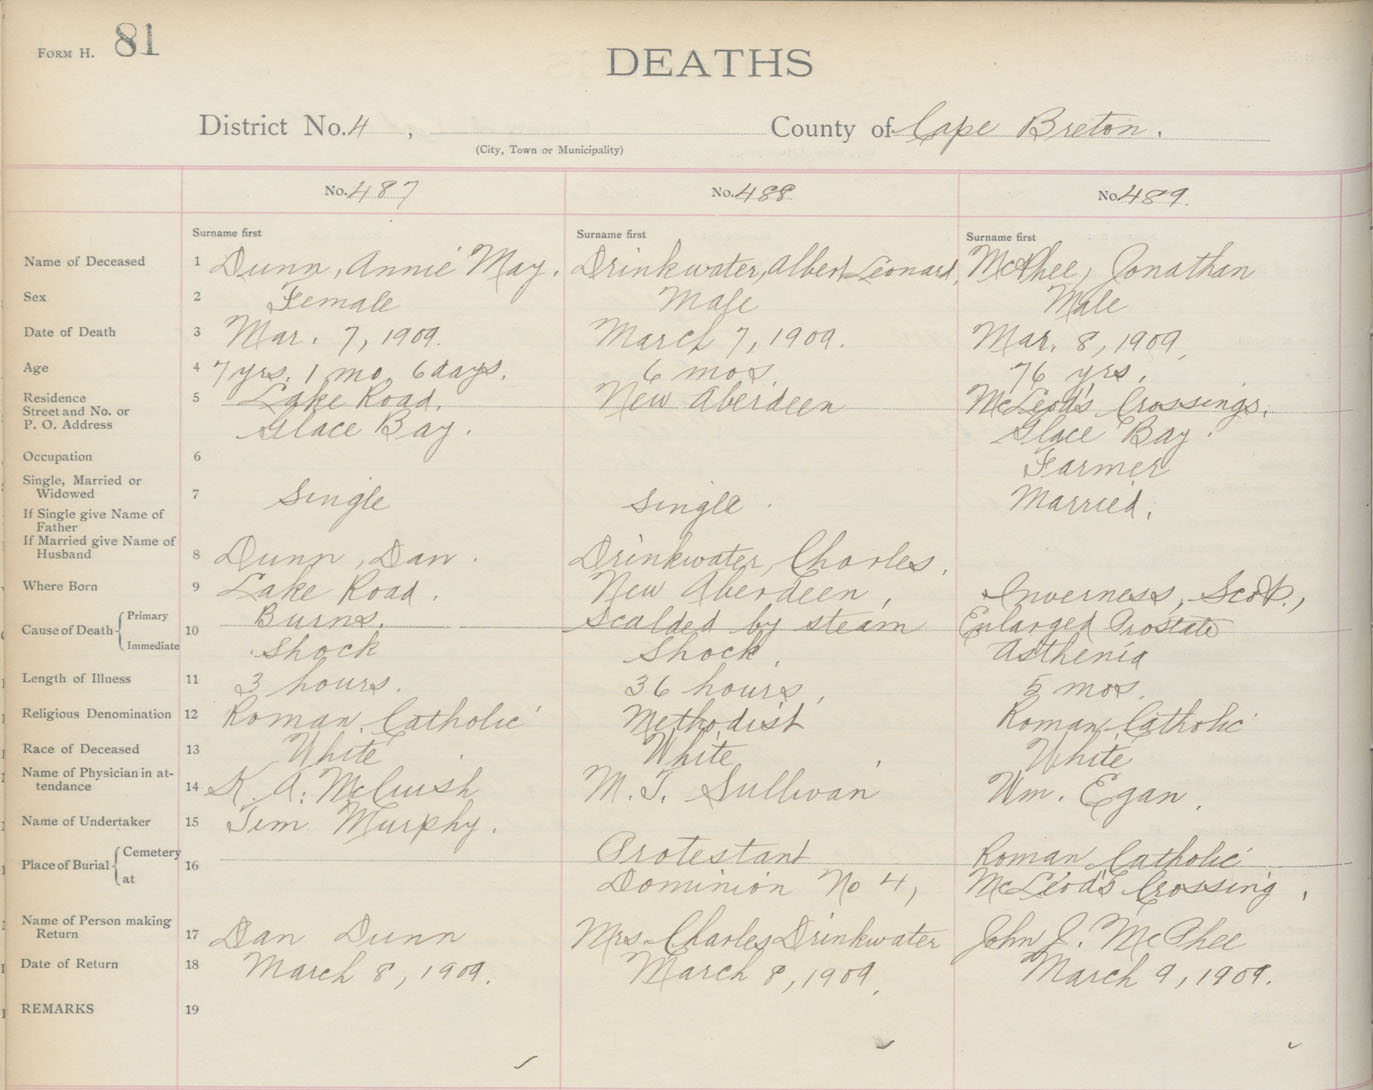 FORM H. 81
DEATHS
District No. 4, County of Cape Breton.
(City, Town or Municipality)
No. 487 No. 488 No. 489.
Surname first Surname first Surname first
Name of Deceased 1 Dunn, Annie May. Drinkwater, Albert Leonard, McPhee, Jonathan
Sex 2 Female Male Male
Date of Death 3 Mar. 7, 1909. March 7, 1909. Mar. 8, 1909,
Age 4 7 yrs. 1 mo. 6 days. 6 mos. 76 yrs.
Residence 5 Lake Road, New Aberdeen McLeod's Crossings,
Street and No. or
P. O. Address Glace Bay. Glace Bay.
Occupation 6 Farmer
Single, Married or
Widowed 7 Single Single. Married.
If Single give Name of
Father
If Married give Name of
Husband 8 Dunn, Dan. Drinkwater, Charles.
Where Born 9 Lake Road. New Aberdeen, Inverness, Scot.,
Cause of Death Primary 10 Burns. Scalded by steam Enlarged Prostate
Immediate Shock Shock, Asthenia
Length of Illness 11 3 hours. 36 hours, 5 mos.
Religious Denomination 12 Roman Catholic Methodist Roman Catholic
Race of Deceased 13 White White White
Name of Physician in at-
tendance 14 K. A. McCuish M. T. Sullivan Wm. Egan.
Name of Undertaker 15 Jim Murphy.
Place of Burial Cemetery 16 Protestant Roman Catholic
at Dominion No 4, McLeod's Crossing,
Name of Person making
Return 17 Dan Dunn Mrs Charles Drinkwater John J. McPhee
Date of Return 18 March 8, 1909. March 8, 1909, March 9, 1909.
REMARKS 19